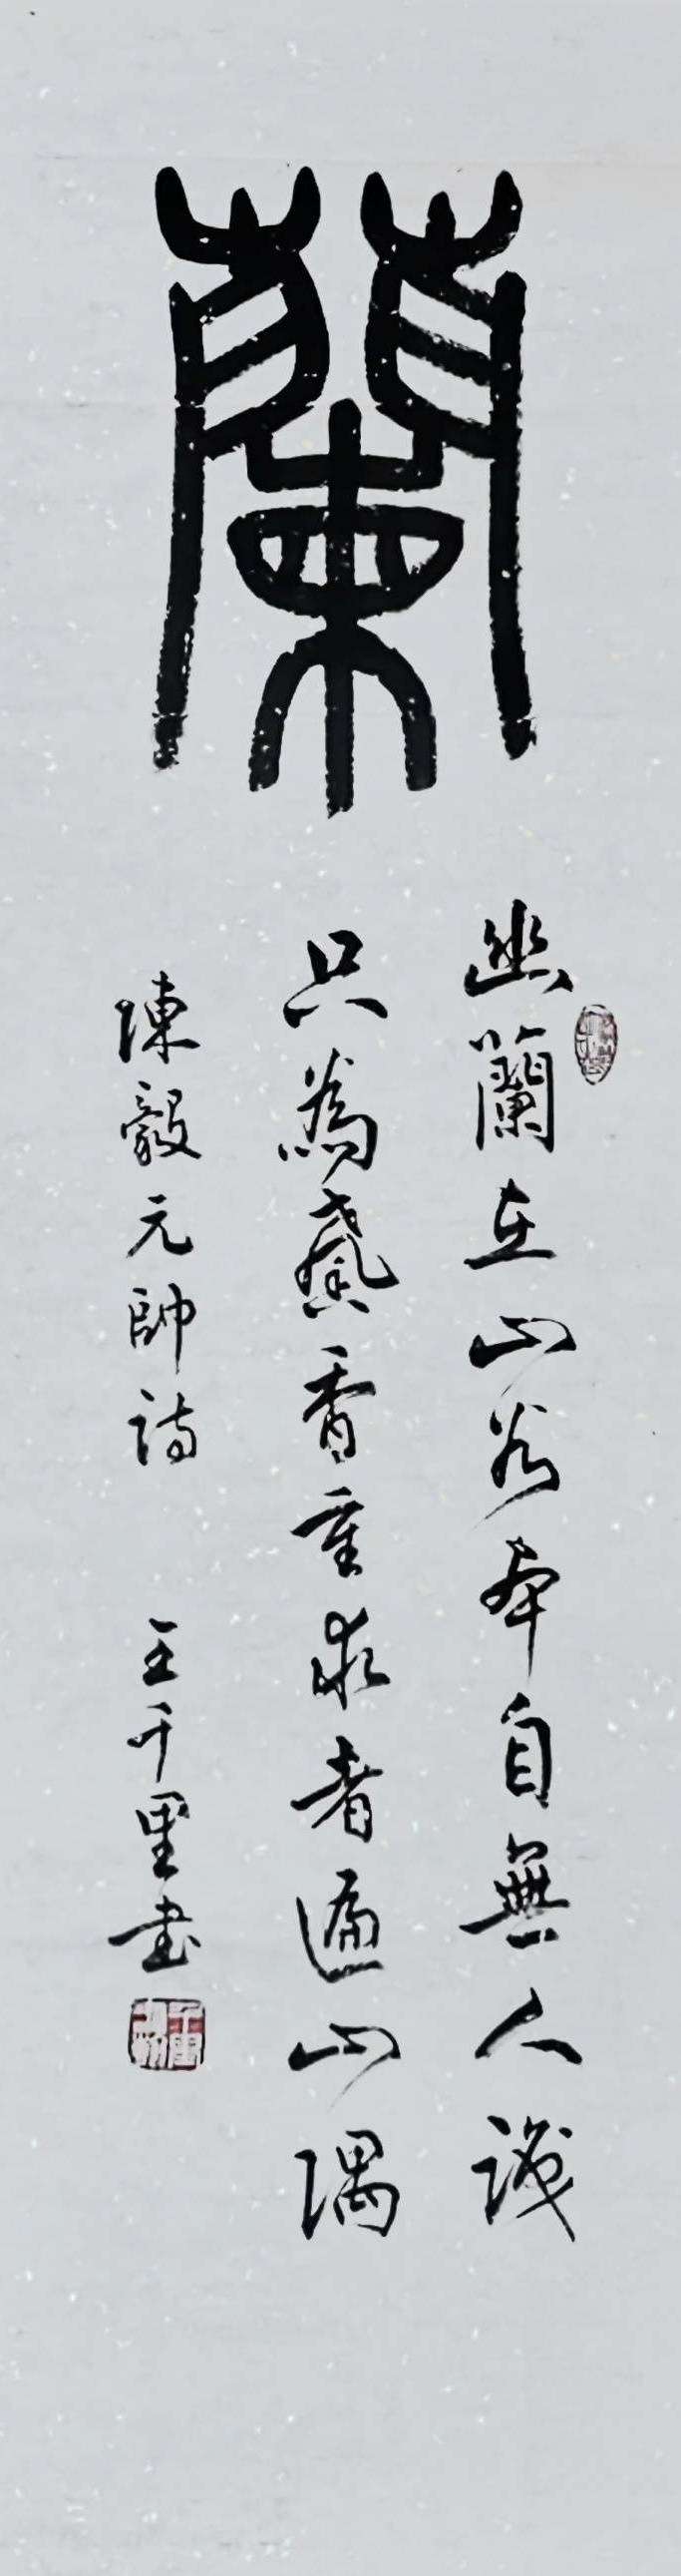 蘭
幽蘭在山谷本自無人識
只為馨香重求者遍山隅
陳毅元帥詩 王千里書